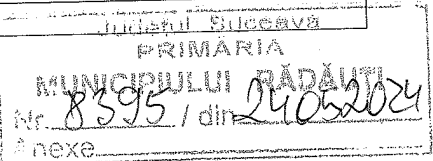 Județul Suceava
PRIMĂRIA
MUNICIPIULUI RĂDĂUȚI
Nr. 8395 / din 24052024
Anexe